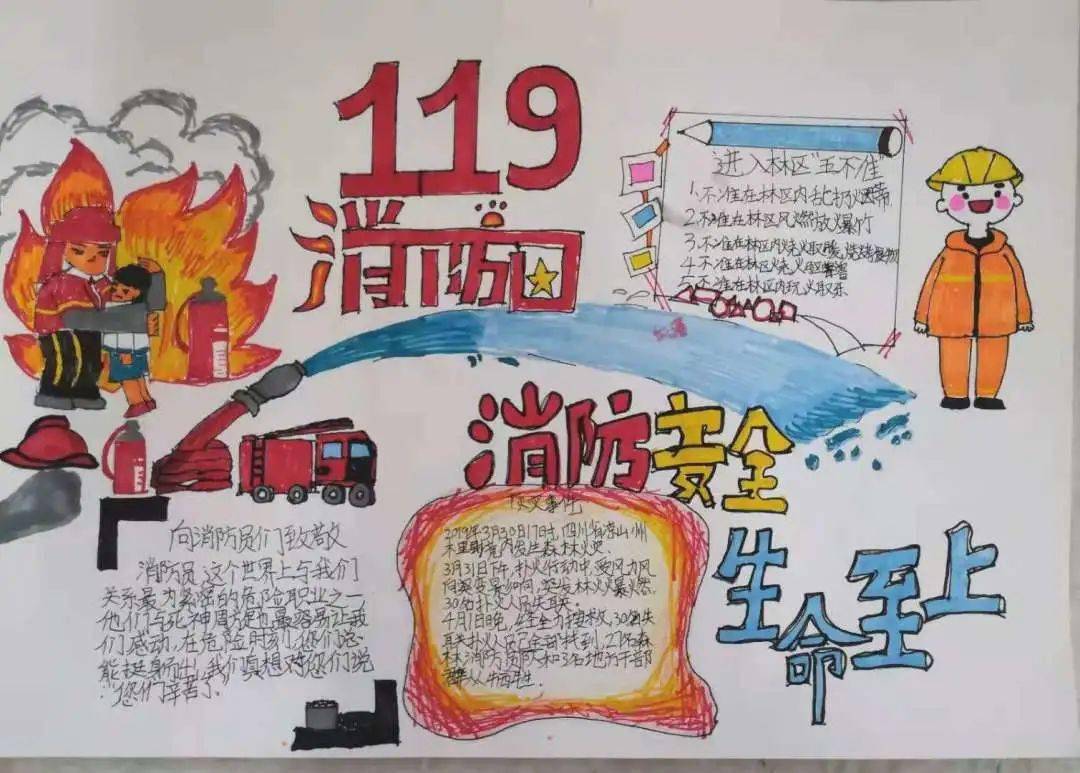 119
消防日
进入林区"五不准"
1.不准在林区内乱扔火烟蒂
2.不准在林区风燃放爆竹
3.不准在林区内烧火取暖,烧烤食物
4.不准在林区火烧火驱
5.不准在林区内玩火取乐
消防安全
生命至上
向消防员们致敬
消防员,这个世界上与我们
关系最为紧密的危险职业之一
他们与死神周旋也最容易让我
们感动,在危险时刻,您们总
能挺身而出,我们真想对您们说
"您们辛苦了"
火灾事件
2019年3月30日17时,四川省凉山州
木里县境内发生森林火灾.
3月31日下午,扑火行动中,受风力风
向突变影响,突发林火爆燃,
30名扑火人员失联.
4月1日晚,经全力搜救,30名失
联扑火人员已全部找到,27名森
林消防员队和3名地方干部
群众牺牲.